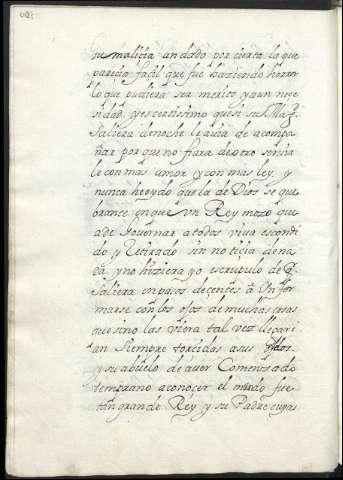 su malitia an dado por cierta la que
parecio facil que fue haziendo horror
lo que pudiera ser merito, y aun nece
sidad, y es certissimo que si su Mag.d
saliera de noche le auia de acompa
ñar por que no fiara de otro seruir
le con mas amor y con mas ley, y
nunca he oydo que la de Dios se que
brante, en que Un Rey mozo que
a de Gouernar a todos viua escondi
do y Retirado sin noticia de na
da, y no hiziera yo escrupulo de q
saliera en pasos decentes à Un for
marse con los ojos de muchas cosas
que sino las viera tal vez llegari
an siempre torcidas a sus
y su abuelo de auer Comenzado
temprano a conocer el mundo fue
tan grande Rey y su Padre cuyas